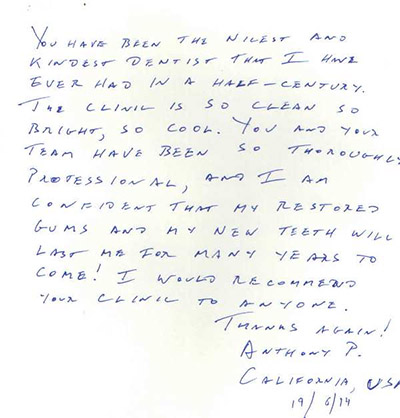 YOU HAVE BEEN THE NICEST AND
KINDEST DENTIST THAT I HAVE
EVER HAD IN A HALF-CENTURY.
THE CLINIC IS SO CLEAN SO
BRIGHT, SO COOL. YOU AND YOUR
TEAM HAVE BEEN SO THOROUGHLY
PROFESSIONAL, AND I AM
CONFIDENT THAT MY RESTORED
GUMS AND MY NEW TEETH WILL
LAST ME FOR MANY YEARS TO
COME! I WOULD RECOMMEND
YOUR CLINIC TO ANYONE.
THANKS AGAIN!
ANTHONY P.
CALIFORNIA, USA
19/6/14